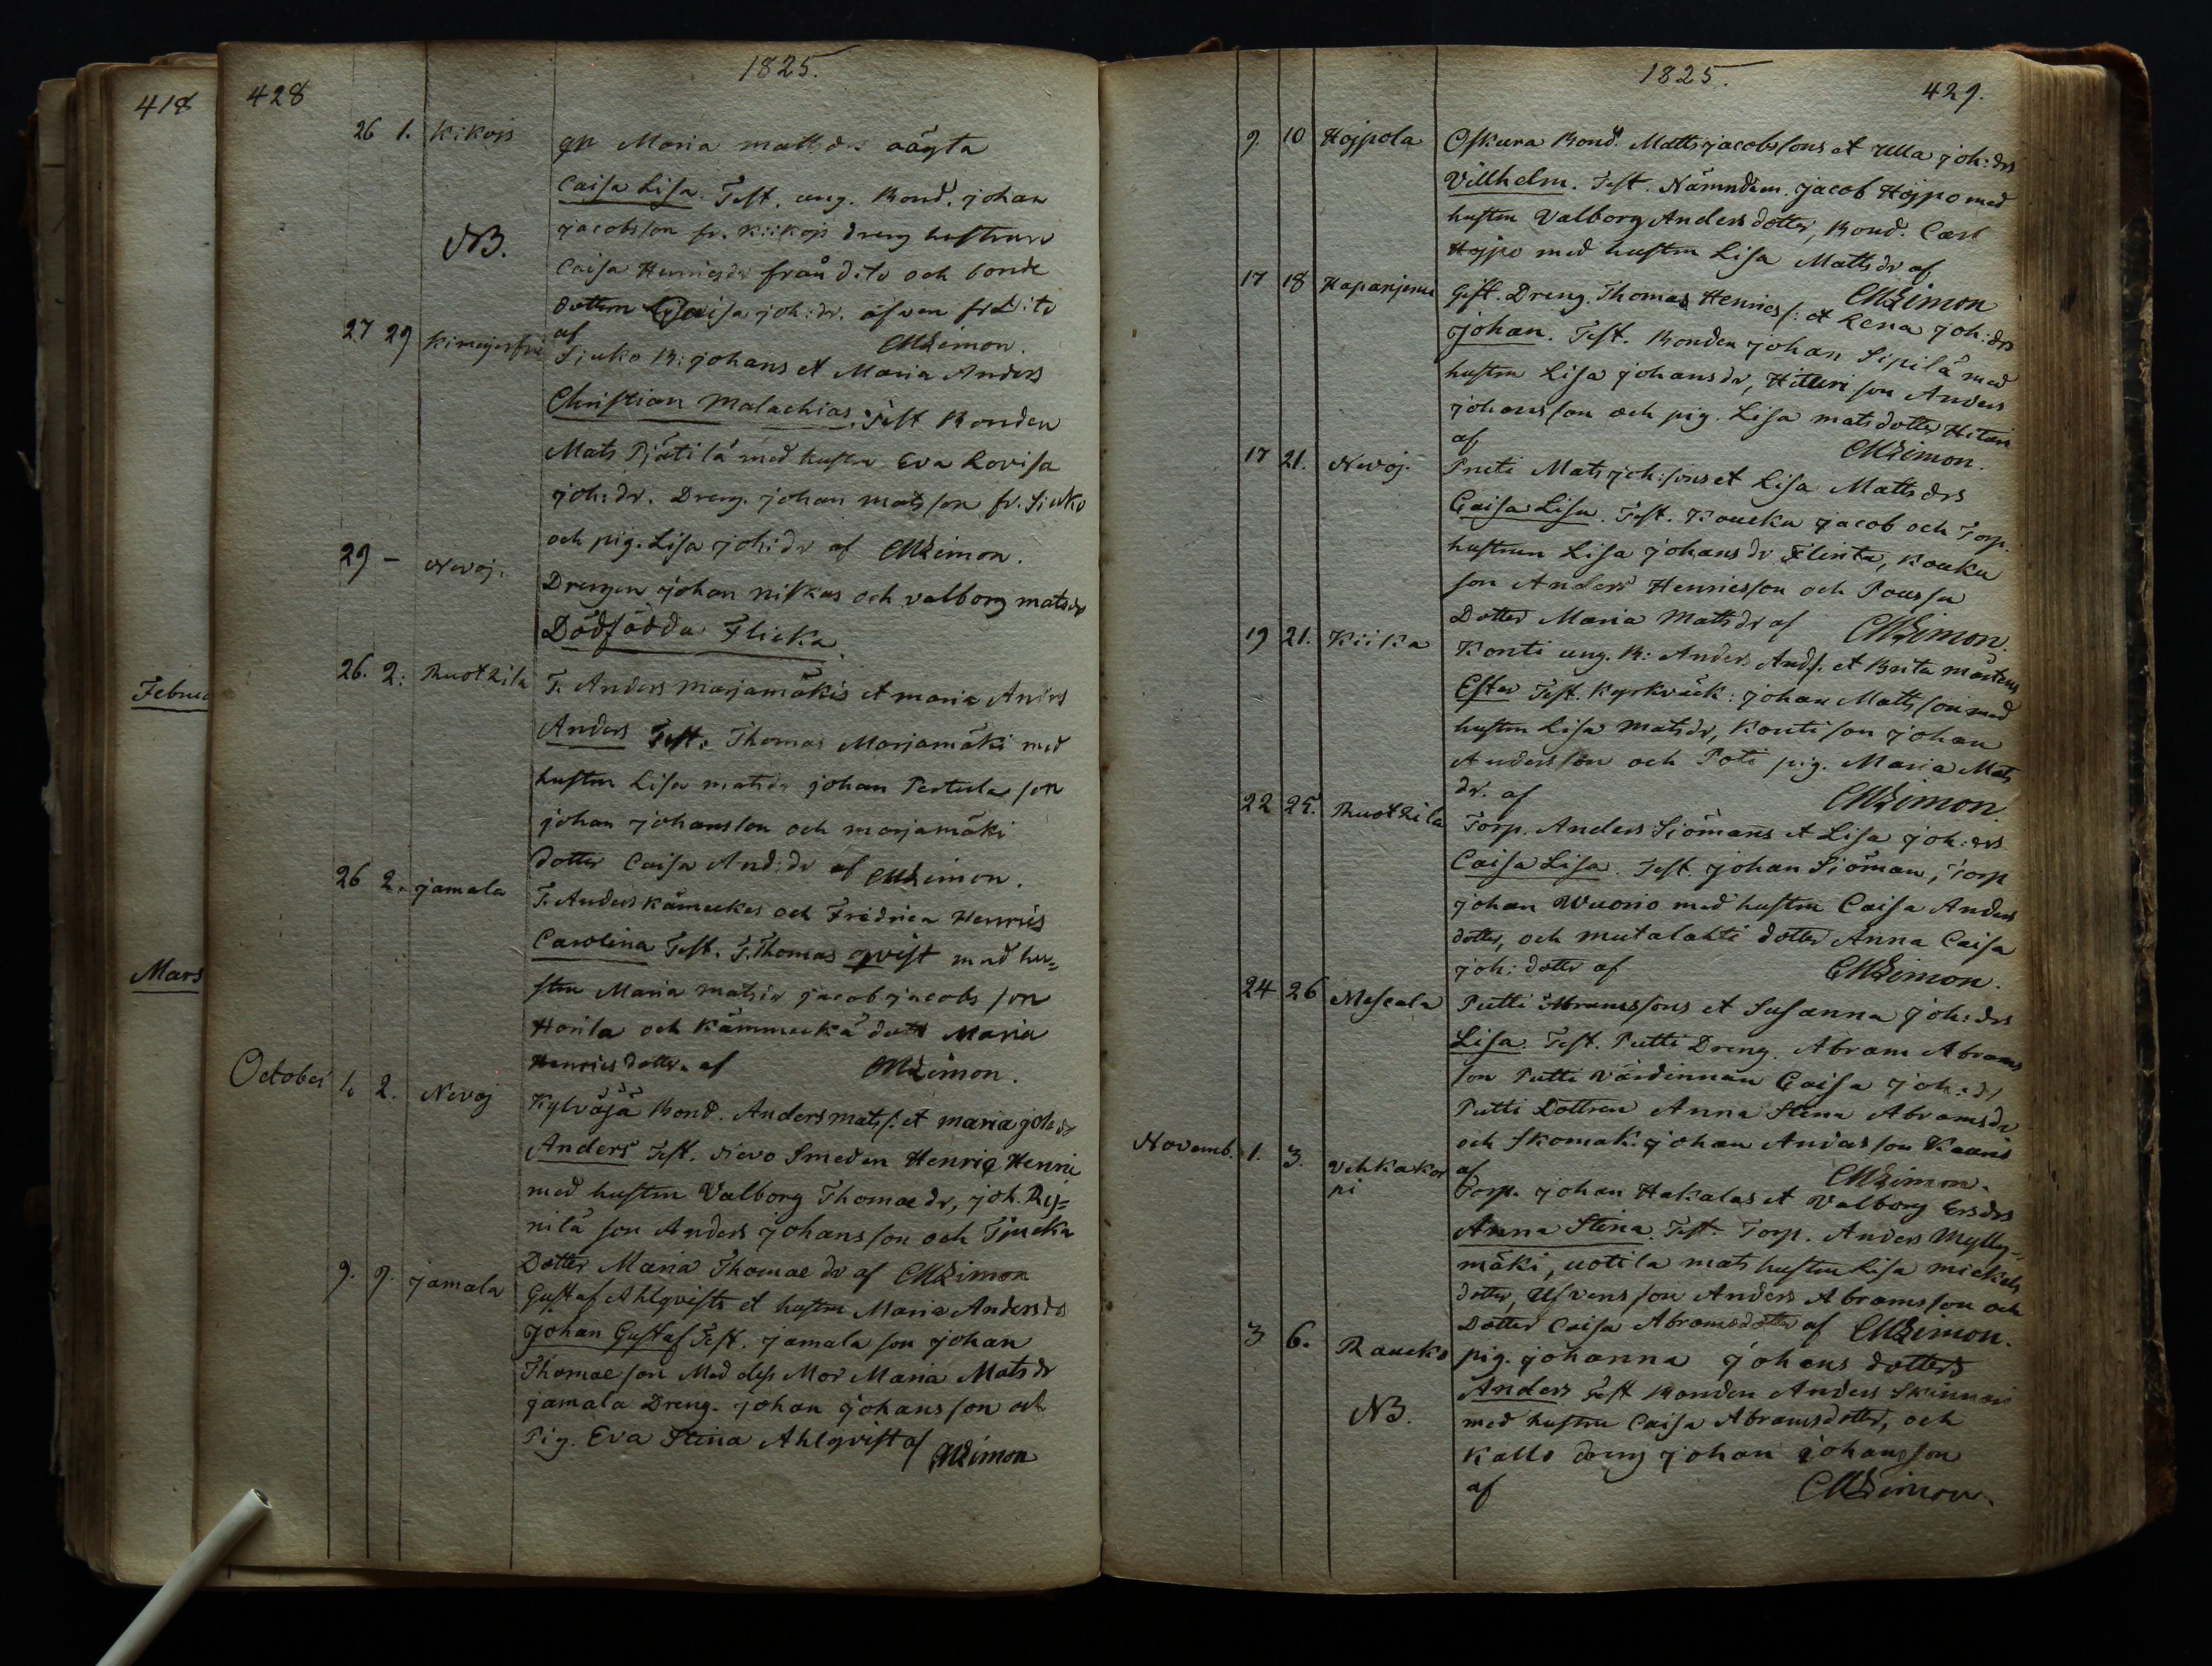 418
Februa
Mars
428
1825.
26 1. Kikois qp Maria matts drs oägta
Caisa Lisa. Test. ung. Bond. johan
jacobsson fr. Kiikois dreng hustrun
NB.
Caisa Henricsdr från dito och bonde
dottern Caisa joh: dr. äfwen fr dito
af CMLimon.
27 29 Sjuko B: johans et Maria Anders
Christian Malachias. Test Bonden
Mats Pjätilä med hustru Eva Lovisa
joh: dr. Dreng. johan mats son fr. Sjuko
och pig. Lisa joh: dr af CMLimon.
29 – Nevoj. Drengen johan niskas och valborg matsdr
Dödfödda Flicka
26. 2. Ruotzila T. Anders Marjamäkis et maria Andrs
Anders Test. Thomas Marjamäki med
hustru Lisa matsdr johan Pertula son
johan johansson och marjamäki
dotter Caisa And: dr af CMLimon.
26 2. jamala T. Anders kämeckes och Fredrica Henrics
Carolina Test. T. Thomas qvist med hu=
stru Maria matsdr jacob jacobs son
Horila och Kämmeckä dott Maria
Henricsdotter af CMLimon.
October 1. 2. Nevoj Kylväjä Bond. Anders mats s: et maria joh dr
Anders Test. Nevo Smeden Henric Henric
med hustru Valborg Thomae dr, joh. Rij=
nilä son Anders johansson och Tjucka
Dotter Maria Thomae dr af CMLimon
9. 9. jamala Gustaf Ahlqvists et hustru Maria Andersdr
Johan Gustaf Test. jamala son johan
Thomaeson Med dess Mor Maria Matsdr
jamala Dreng. johan johansson och
Pig. Eva Stina Ahlqvist af CMLimon
1825.
429.
9. 10 Hojpola Oskura Bond. Matts jacobssons et Ulla joh: drs
Villhelm. Test. Nämndem. jacob Hojpo med
hustru Valborg Anders dotter, Bond. Carl
Hojpo med hustru Lisa Mattsdr af
CMLimon
17 18 Haparijervi Gift. Dreng. Thomas Henrics s: et Lena joh: drs
johan. Test. Bonden johan Sipilä med
hustru Lisa johansdr, Hituri son Anders
johansson och pig. Lisa matsdotter Hitari
af CMLimon.
17 21. Nevoj. Priti Mats joh: sons et Lisa Matts drs
Caisa Lisa. Test. Koucku jacob och Torp.
hustrun Lisa johansdr Flinta, Koucku
son Anders Henricsson och Poussa
Dotter Maria Mattsdr af CMLimon.
19 21. Kiika Konti ung. B: Anders Ands. et Brita mårtens
Ester Test. Kyrkväck: johan Mattsson med
hustru Lisa matsdr, Konti son johan
Andersson och Poti pig. Maria Mats
dr. af CMLimon.
22 25. Ruotzila Torp. Anders Sjömans et Lisa joh: drs
Caisa Lisa. Test. johan Sjöman, Torp
johan Wuorio med hustru Caisa Anders
dotter, och mutalahti dotter Anna Caisa
joh: dotter af CMLimon.
24 26 Mescala Putti Abramssons et Susanna joh: drs
Lisa. Test. Putti Dreng. Abram Abrams
son Putti värdinnan Caisa joh: dr
Putti Dottren Anna Stina Abramsdr
och skomak: johan Andersson Kaanis
af CMLimon.
Novemb. 1. 3. Vehkakor
pi Torp. johan Hakalas et Valborg Ersdrs
Anna Stina. Test. Torp. Anders Mylly=
mäki, uotila mats hustru Lisa mickels
dotter, Ufvens son Anders Abramsson och
Dotter Caisa Abramsdotter af CMLimon.
3 6. Raucko pig. johanna johans dotters
Anders Test Bonden Anders Skinnari
NB. med hustru Caisa Abramsdotter, och
Kallo dreng johan johansson
af CMLimon.